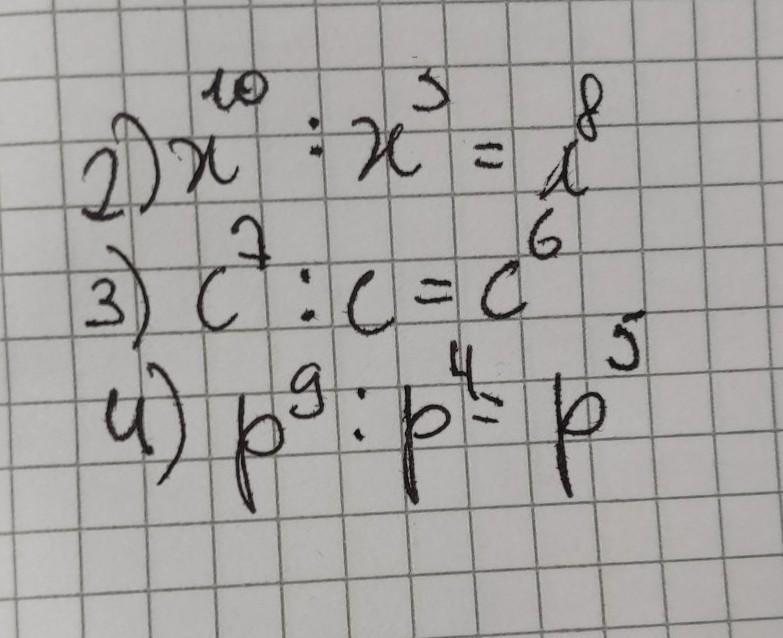 2) x¹⁰ : x³ = x⁸
3) c⁷ : c = c⁶
4) p⁹ : p⁴ = p⁵